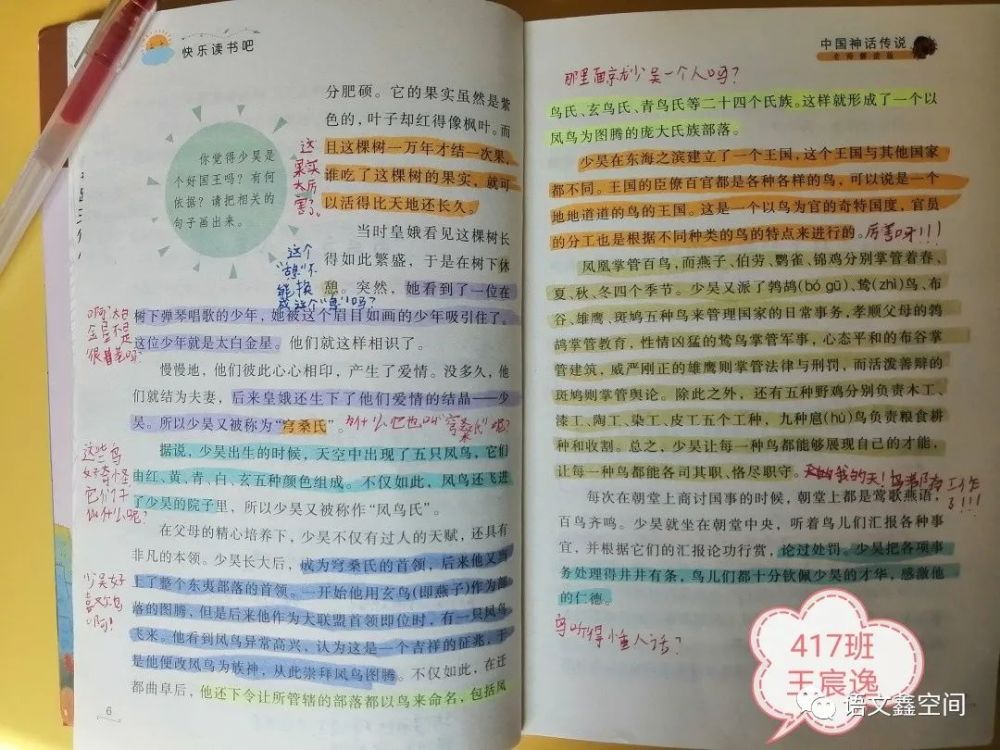 快乐读书吧
你觉得少昊是
个好国王吗？有何
依据？请把相关的
句子画出来。
分肥硕。它的果实虽然是紫
色的，叶子却红得像枫叶。而
且这棵树一万年才结一次果，
谁吃了这棵树的果实，就可
以活得比天地还长久。
这
果实
太厉
害了。
当时皇娥看见这棵树长
得如此繁盛，于是在树下休
憩。突然，她看到了一位在
树下弹琴唱歌的少年，她被这个眉目如画的少年吸引住了。
这位少年就是太白金星。他们就这样相识了。
这个
不
能换
成这个
吗？
啊！太白
金星不是
很
吗？
慢慢地，他们彼此心心相印，产生了爱情。没多久，他
们就结为夫妻，后来皇娥还生下了他们爱情的结晶——少
昊。所以少昊又被称为“穷桑氏”。
为什么他也叫“穷桑氏”呢？
据说，少昊出生的时候，天空中出现了五只凤鸟，它们
由红、黄、青、白、玄五种颜色组成。不仅如此，凤鸟还飞进
了少昊的院子里，所以少昊又被称作“凤鸟氏”。
这些鸟
好奇怪
它们干
什么呢？
在父母的精心培养下，少昊不仅有过人的天赋，还具有
非凡的本领。少昊长大后，成为穷桑氏的首领，后来他又当
上了整个东夷部落的首领。一开始他用玄鸟（即燕子）作为部
落的图腾，但是后来他作为大联盟首领即位时，有一只凤鸟
飞来。他看到凤鸟异常高兴，认为这是一个吉祥的征兆，于
是他便改凤鸟为族神，从此崇拜凤鸟图腾。不仅如此，在迁
都曲阜后，他还下令让所管辖的部落都以鸟来命名，包括凤
少昊好
喜欢鸟
啊！
6
中国神话传说
那里面就少昊一个人吗？
鸟氏、玄鸟氏、青鸟氏等二十四个氏族。这样就形成了一个以
凤鸟为图腾的庞大氏族部落。
少昊在东海之滨建立了一个王国，这个王国与其他国家
都不同。王国的臣僚百官都是各种各样的鸟，可以说是一个
地地道道的鸟的王国。这是一个以鸟为官的奇特国度，官员
的分工也是根据不同种类的鸟的特点来进行的。
厉害呀！！！
凤凰掌管百鸟，而燕子、伯劳、鹦雀、锦鸡分别掌管着春、
夏、秋、冬四个季节。少昊又派了鹁鸪(bó gū)、鸷(zhì)鸟、布
谷、雄鹰、斑鸠五种鸟来管理国家的日常事务，孝顺父母的鹁
鸪掌管教育，性情凶猛的鸷鸟掌管军事，心态平和的布谷掌
管建筑，威严刚正的雄鹰则掌管法律与刑罚，而活泼善辩的
斑鸠则掌管舆论。除此之外，还有五种野鸡分别负责木工、
漆工、陶工、染工、皮工五个工种，九种扈(hù)鸟负责粮食耕
种和收割。总之，少昊让每一种鸟都能够展现自己的才能，
让每一种鸟都能各司其职、恪尽职守。
我的天！鸟
有工作
了！！！
每次在朝堂上商讨国事的时候，朝堂上都是莺歌燕语，
百鸟齐鸣。少昊就坐在朝堂中央，听着鸟儿们汇报各种事
宜，并根据它们的汇报论功行赏，论过处罚。少昊把各项事
务处理得井井有条，鸟儿们都十分钦佩少昊的才华，感激他
的仁德。
鸟听得懂人话？
417班
王宸逸
语文鑫空间